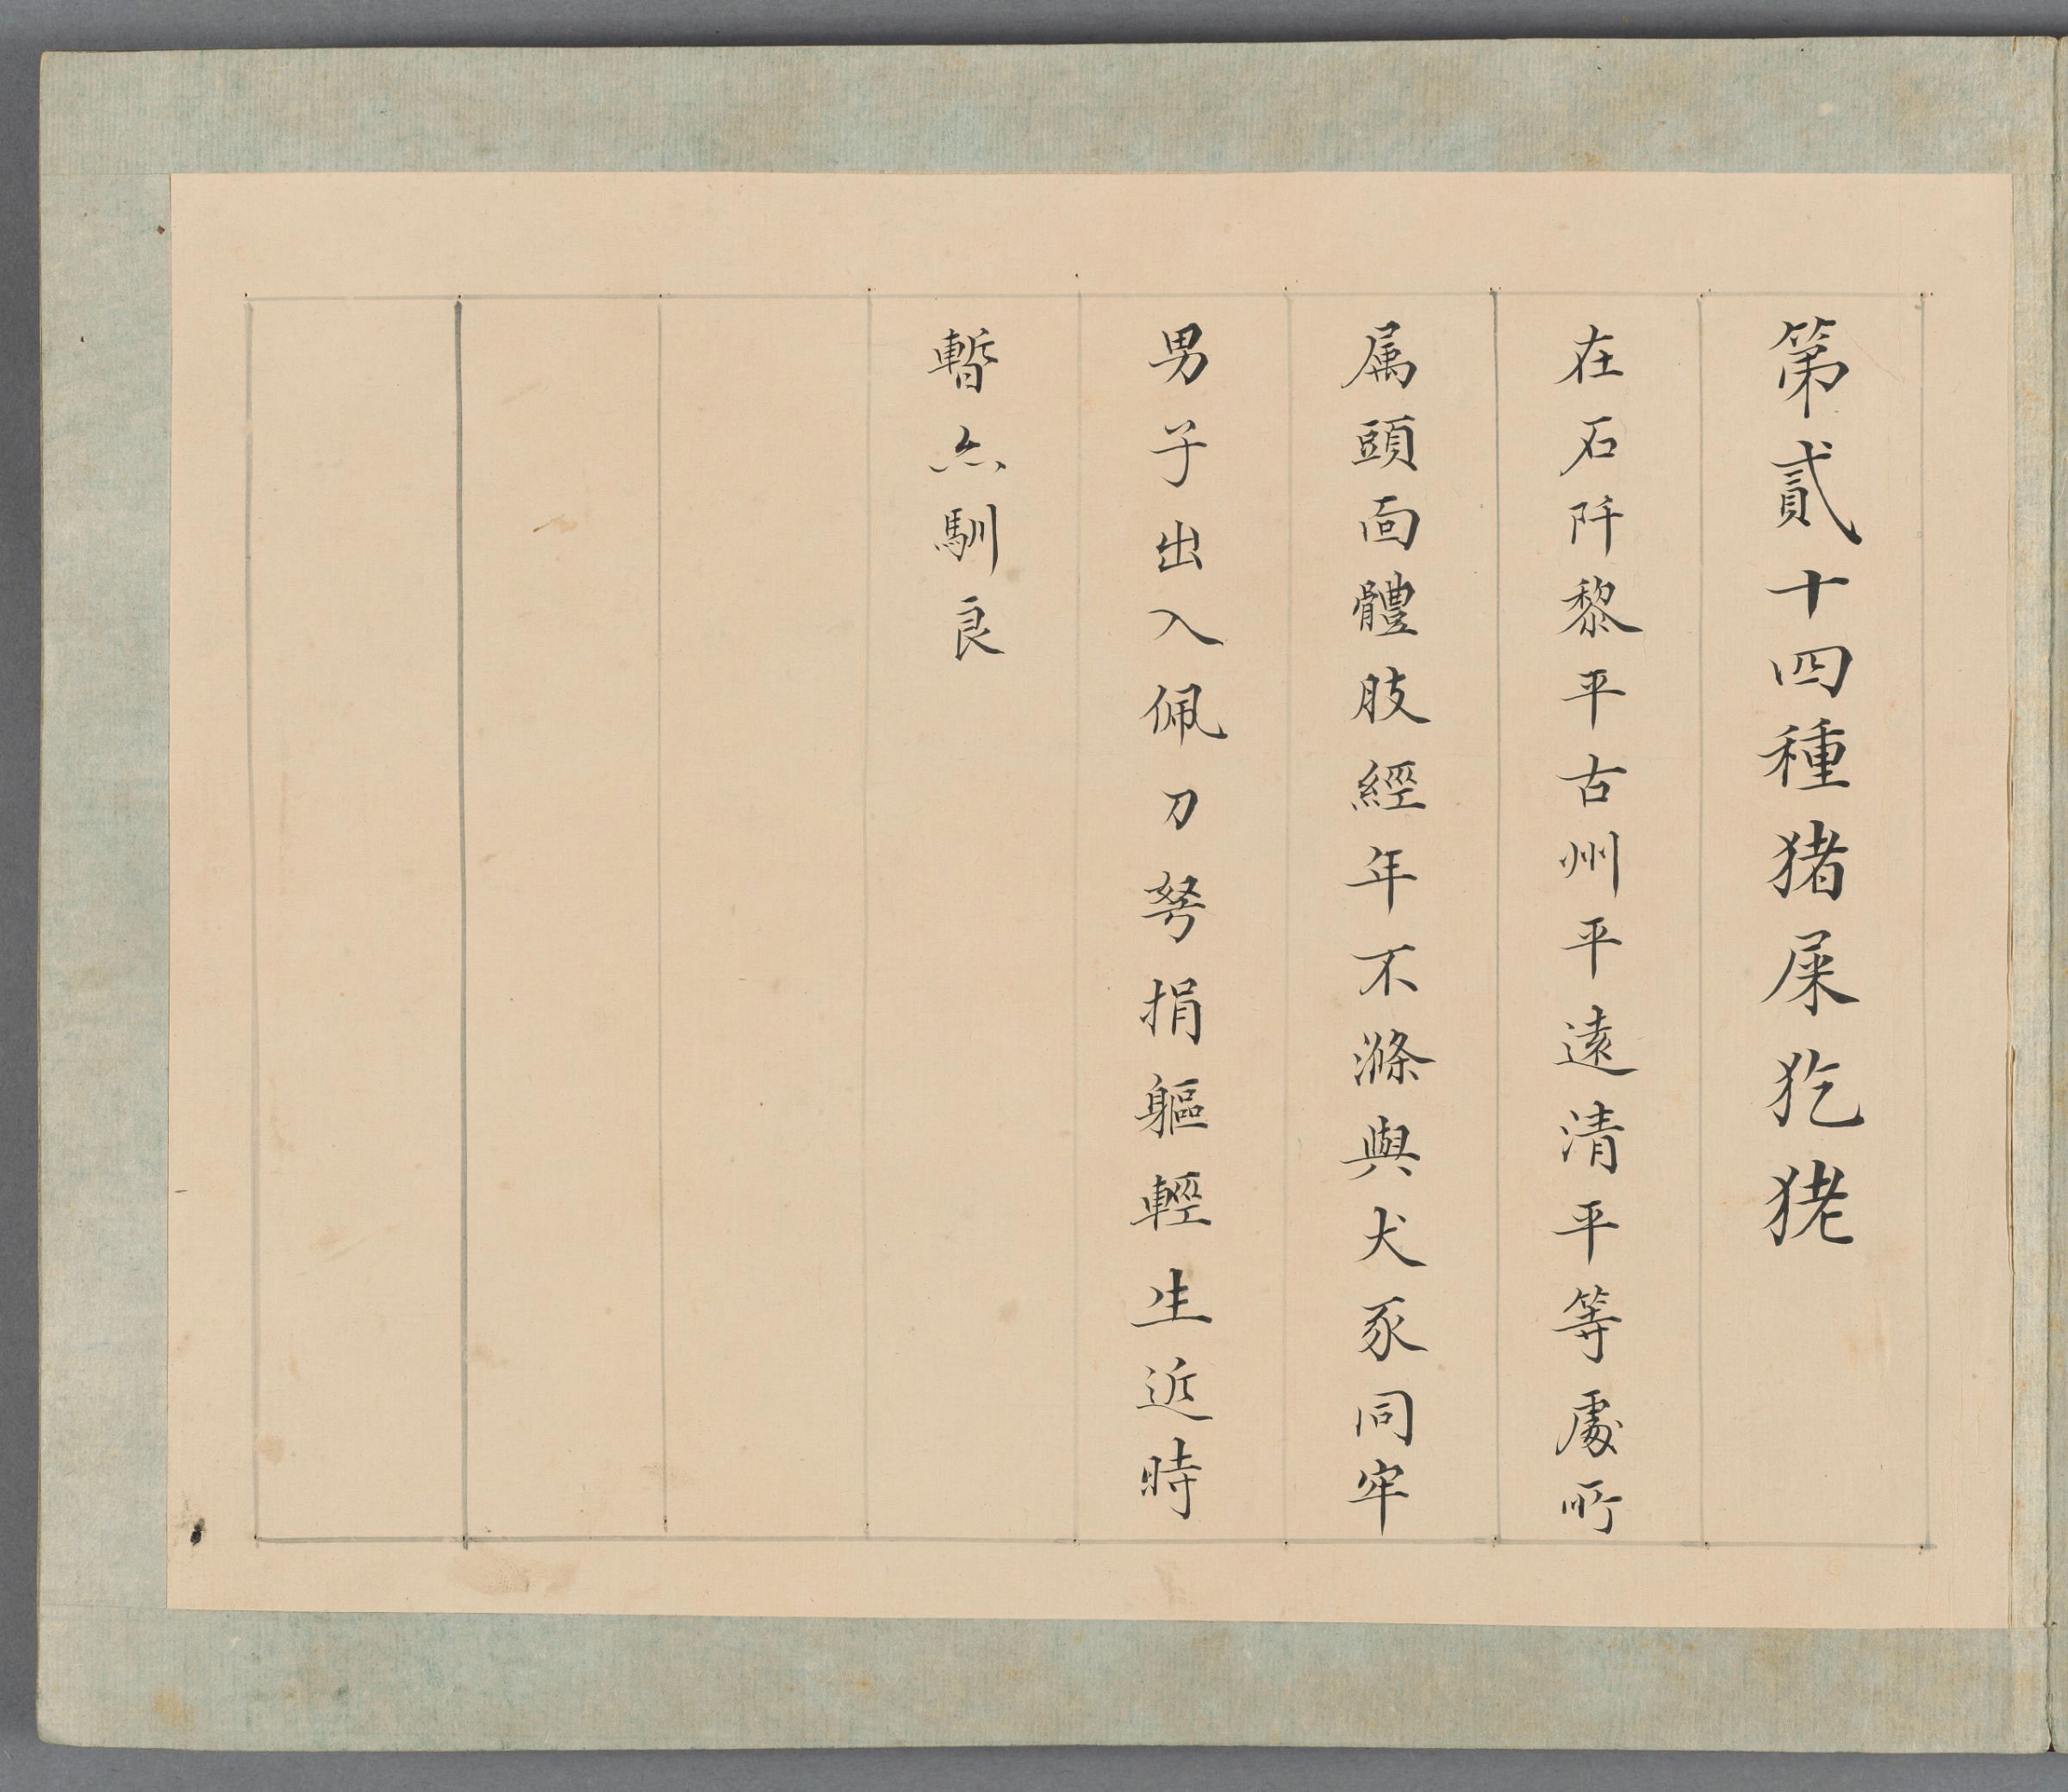 第貳十四種猪屎犵狫
在石阡黎平古州平遠清平等處所
属頭面體肢經年不滌與犬豕同牢
男子出入佩刀弩捐軀輕生近時
暫亦馴良